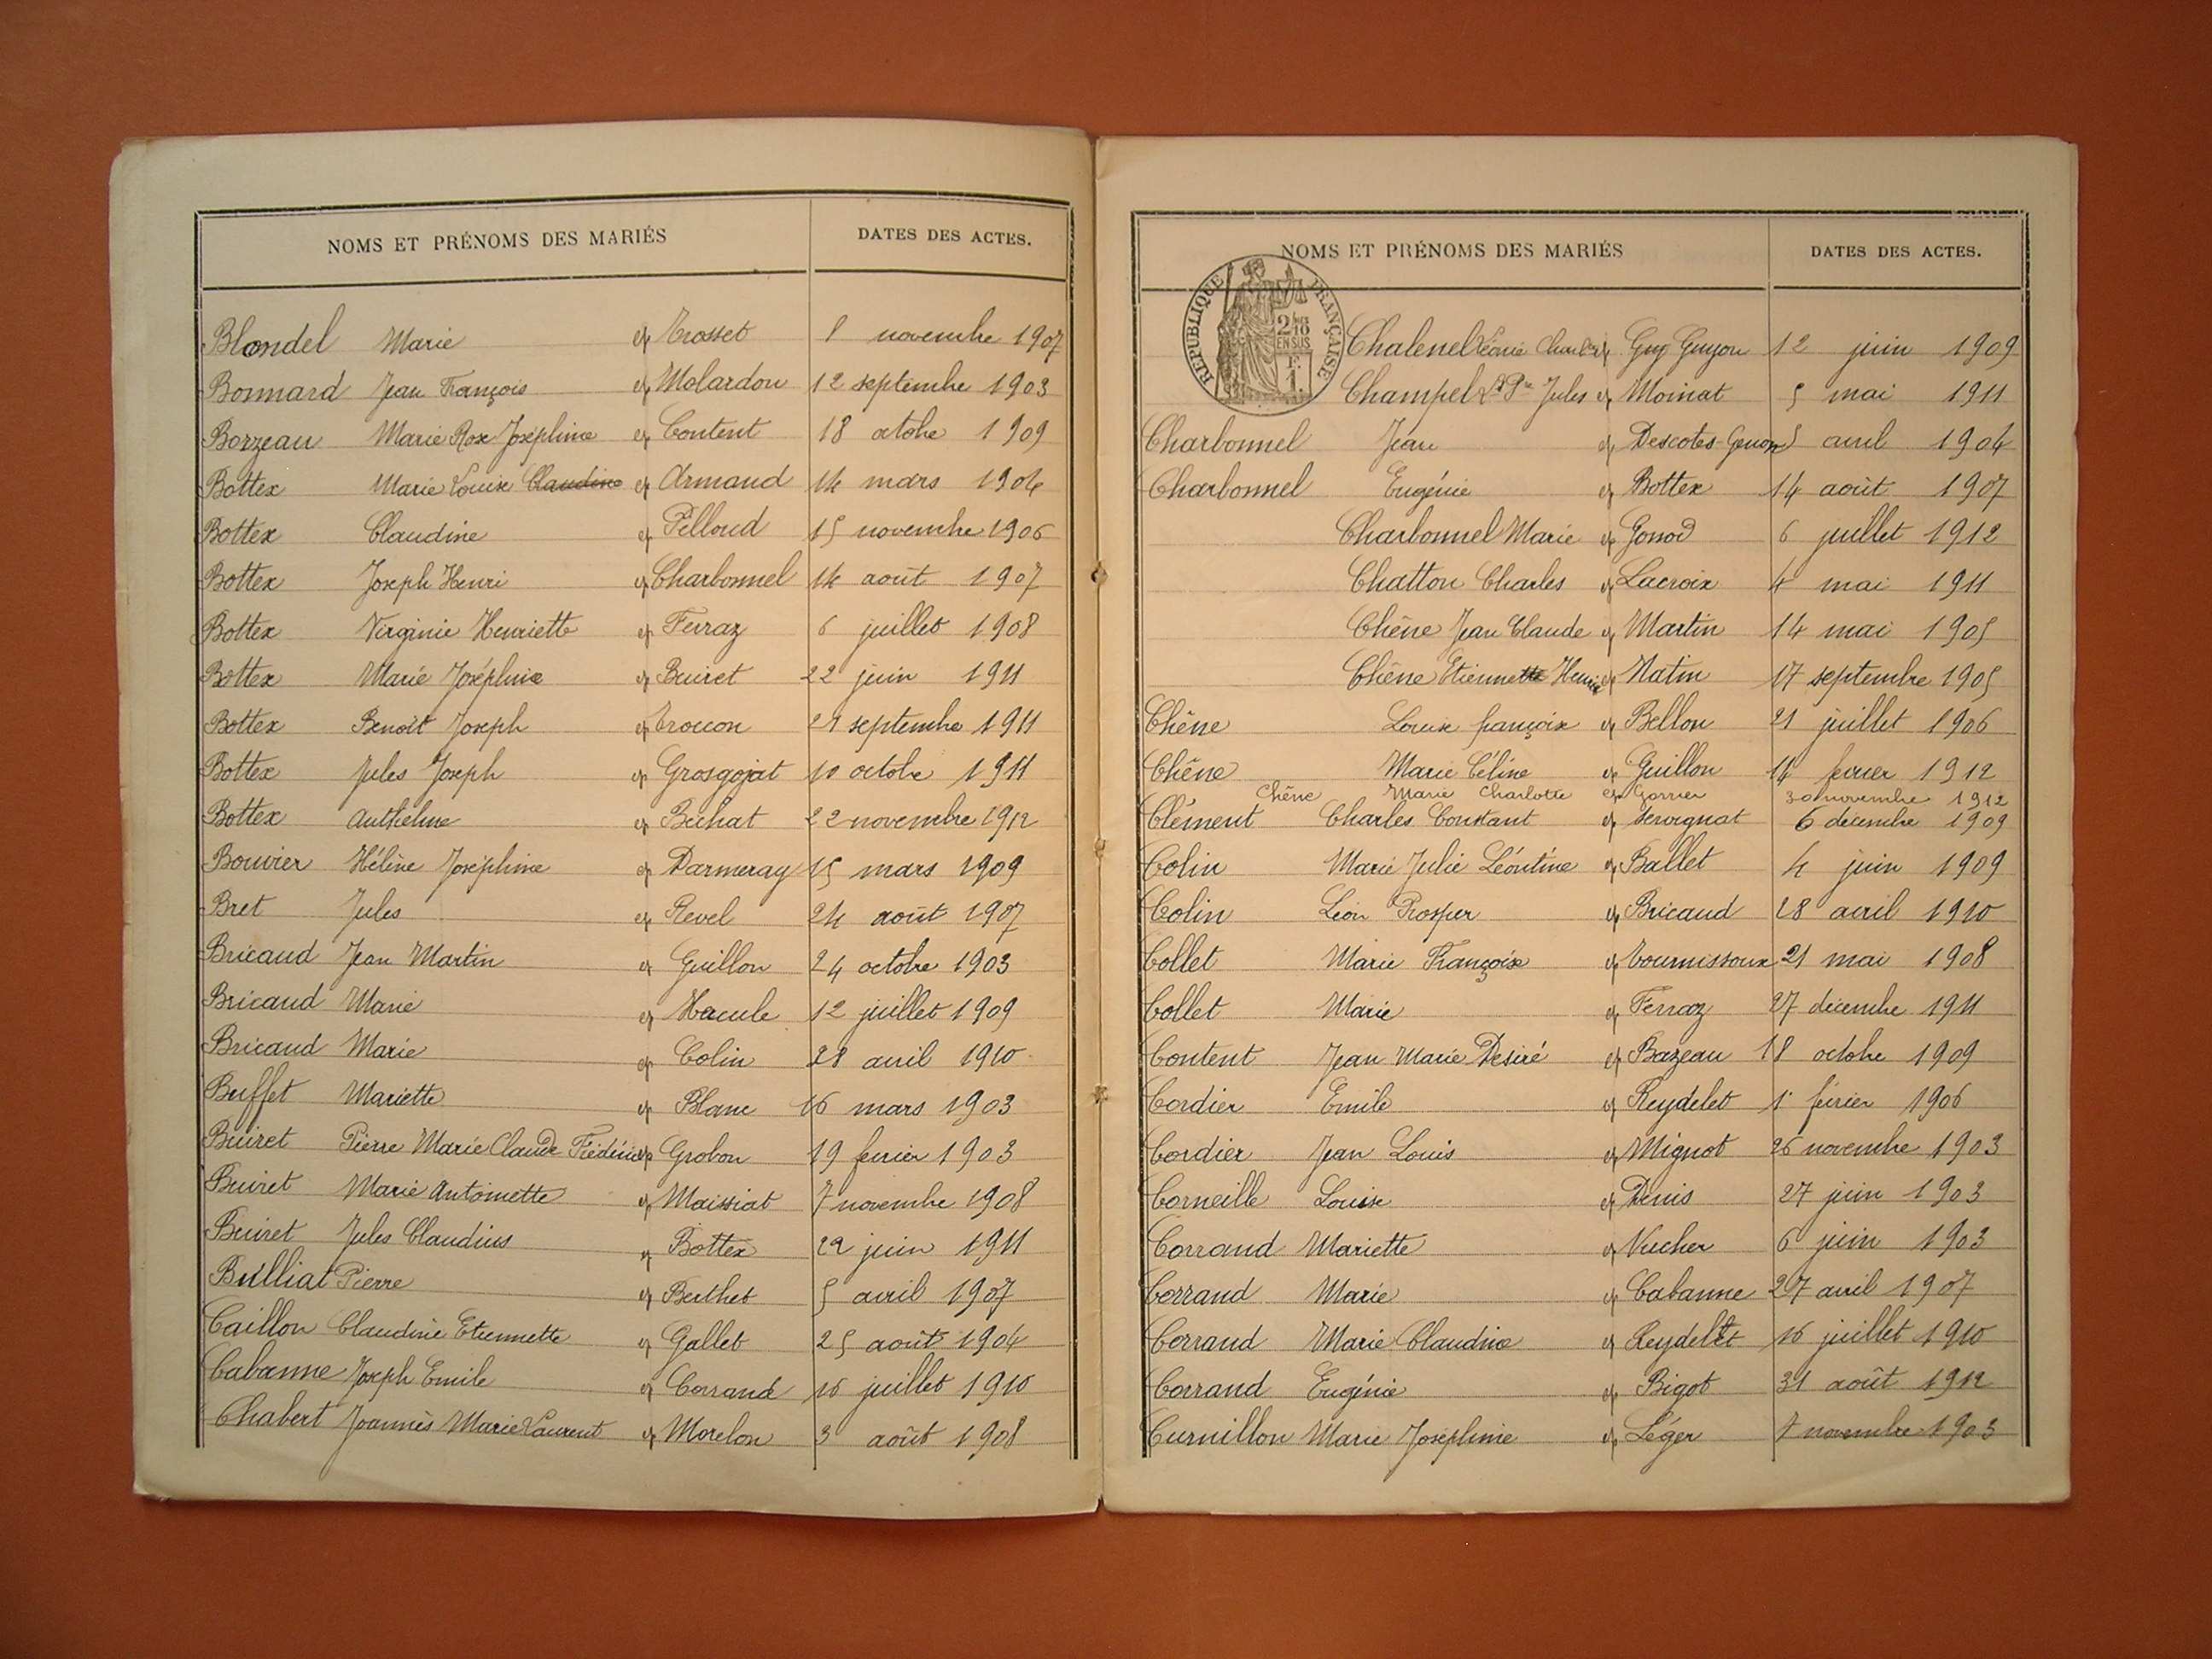 NOMS ET PRÉNOMS DES MARIÉS DATES DES ACTES.
Blondel Marie ep Trosset 8 novembre 1907
Bonnard Jean François ep Molardon 12 septembre 1903
Borzeau Marie Rose Joséphine ep Content 18 octobre 1909
Bottex Marie Louise Claudine ep Armand 14 mars 1904
Bottex Claudine ep Pelloud 15 novembre 1906
Bottex Joseph Henri ep Charbonnel 14 août 1907
Bottex Virginie Henriette ep Ferraz 6 juillet 1908
Bottex Marie Joséphine ep Buiret 22 juin 1911
Bottex Benoît Joseph ep septembre 1911
Bottex Jules Joseph ep Grosgojat 10 octobre 1911
Bottex Anthelme ep Bichat 22 novembre 1912
Bouvier Hélène Joséphine ep Darmeray 15 mars 1909
Bret Jules ep Revel 24 août 1907
Bricaud Jean Martin ep Guillon 24 octobre 1903
Bricaud Marie ep Hacule 12 juillet 1909
Bricaud Marie ep Colin 28 avril 1910
Buffet Mariette ep Blanc 16 mars 1903
Buiret Pierre Marie Claude Frédéric ep Grobon 19 février 1903
Buiret Marie Antoinette ep Maissiat 7 novembre 1908
Buiret Jules Claudius ep Bottex 22 juin 1911
Bulliat Pierre ep Berthet 5 avril 1907
Caillon Claudine Etiennette ep Gallet 25 août 1904
Cabanne Joseph Emile ep Corrand 16 juillet 1910
Chabert Joannès Marie Laurent ep Morelon 3 août 1908
NOMS ET PRÉNOMS DES MARIÉS DATES DES ACTES.
RÉPUBLIQUE FRANÇAISE
2/10 EN SUS
1 F.
Chalenel Léonie ep Guy Guyon 12 juin 1909
Champel Jules ep Moinat 5 mai 1911
Charbonnel Jean ep Descotes-Genon 5 avril 1904
Charbonnel Eugénie ep Bottex 14 août 1907
Charbonnel Marie ep Gonod 6 juillet 1912
Chatton Charles ep Lacroix 4 mai 1911
Chêne Jean Claude ep Martin 14 mai 1905
Chêne Etienne Henri ep Natin 17 septembre 1905
Chêne Louise françoise ep Bellon 21 juillet 1906
Chêne Marie Céline ep Guillon 14 février 1912
Chêne Marie Charlotte ep Garnier 30 novembre 1912
Clément Charles Constant ep Servignat 6 décembre 1909
Colin Marie Julie Léontine ep Ballet 4 juin 1909
Colin Léon Prosper ep Bricaud 28 avril 1910
Collet Marie Françoise ep Tournissoux 21 mai 1908
Collet Marie ep Ferraz 27 décembre 1911
Content Jean Marie Desiré ep Bazeau 18 octobre 1909
Cordier Emile ep Reydelet 1er février 1906
Cordier Jean Louis ep Mignot 26 novembre 1903
Corneille Louise ep Denis 27 juin 1903
Corrand Mariette ep Vucher 6 juin 1903
Corrand Marie ep Cabanne 27 avril 1907
Corrand Marie Claudine ep Reydelet 16 juillet 1910
Corrand Eugénie ep Bigot 31 août 1912
Curnillon Marie Joséphine ep Léger 7 novembre 1903